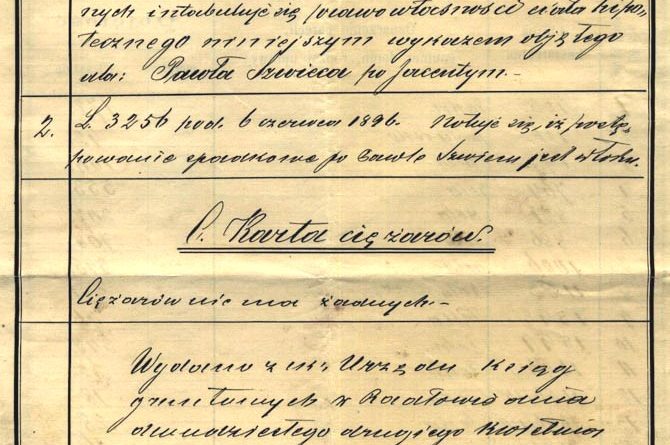 nych intabuluje się prawo własności ciała hipo-
tecznego niniejszym wykazem objętego
dla: Pawła Szwieca po Jacentym. -
2. L. 3256 pod. 6 czerwca 1896. Notuje się, iż postę-
powanie spadkowe po Pawle Szwiecu jest w toku.
C. Karta ciężarów.
Ciężarów nie ma żadnych. -
Wydano z ck. Urzędu ksiąg
gruntowych w Radłowie dnia
dwudziestego drugiego Kwietnia